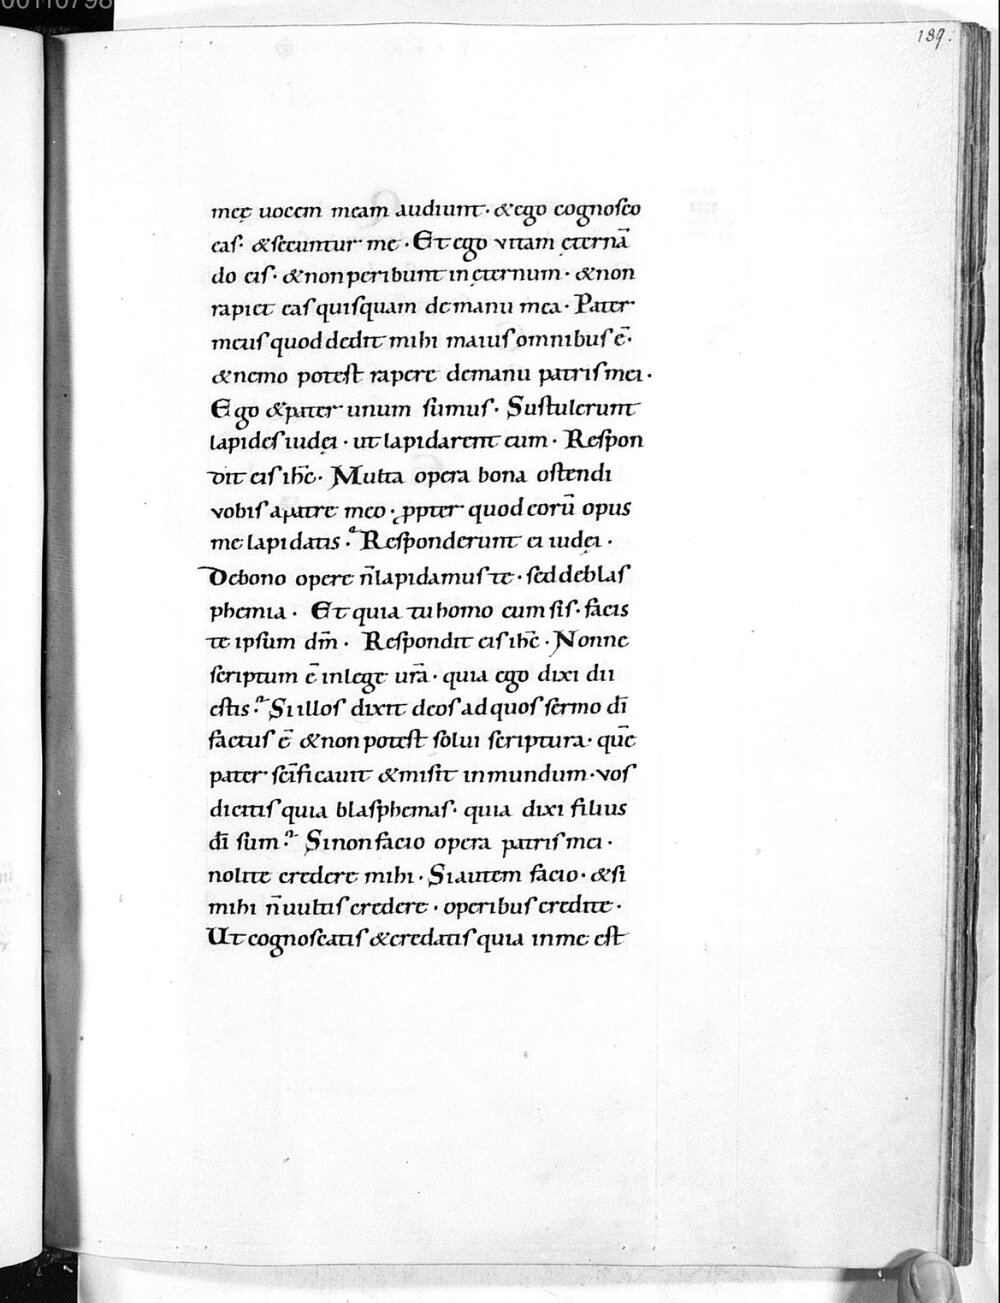 00110798
189.
meę uocem meam audiunt· &ego cognosco
eas· &secuntur me· Et ego vitam ęternā
do eis· &non peribunt in ęternum· &non
rapiet eas quisquam de manu mea· Pater
meus quod dedit mihi maius omnibus ē·
&nemo potest rapere demanu patris mei·
Ego &pater unum sumus· Sustulerunt
lapides iudęi· ut lapidarent eum· Respon
dit eis ihc̄· Multa opera bona ostendi
vobis apatre meo· ꝓpter quod eorū opus
me lapidatis? Responderunt ei iudęi·
Debono opere n̄ lapidamus te· sed deblas
phemia· Et quia tu homo cum sis· facis
te ipsum dm̄· Respondit eis ihc̄· Nonne
scriptum ē inlege ur̄a· quia ego dixi dii
estis? Si illos dixit deos ad quos sermo dī
factus ē &non potest solui scriptura· quē
pater sc̄ificauit &misit inmundum· vos
dicitis quia blasphemas· quia dixi filius
dī sum? Sinon facio opera patris mei·
nolite credere mihi· Siautem facio· &si
mihi n̄ uultis credere· operibus credite·
Ut cognoscatis &credatis quia inme est